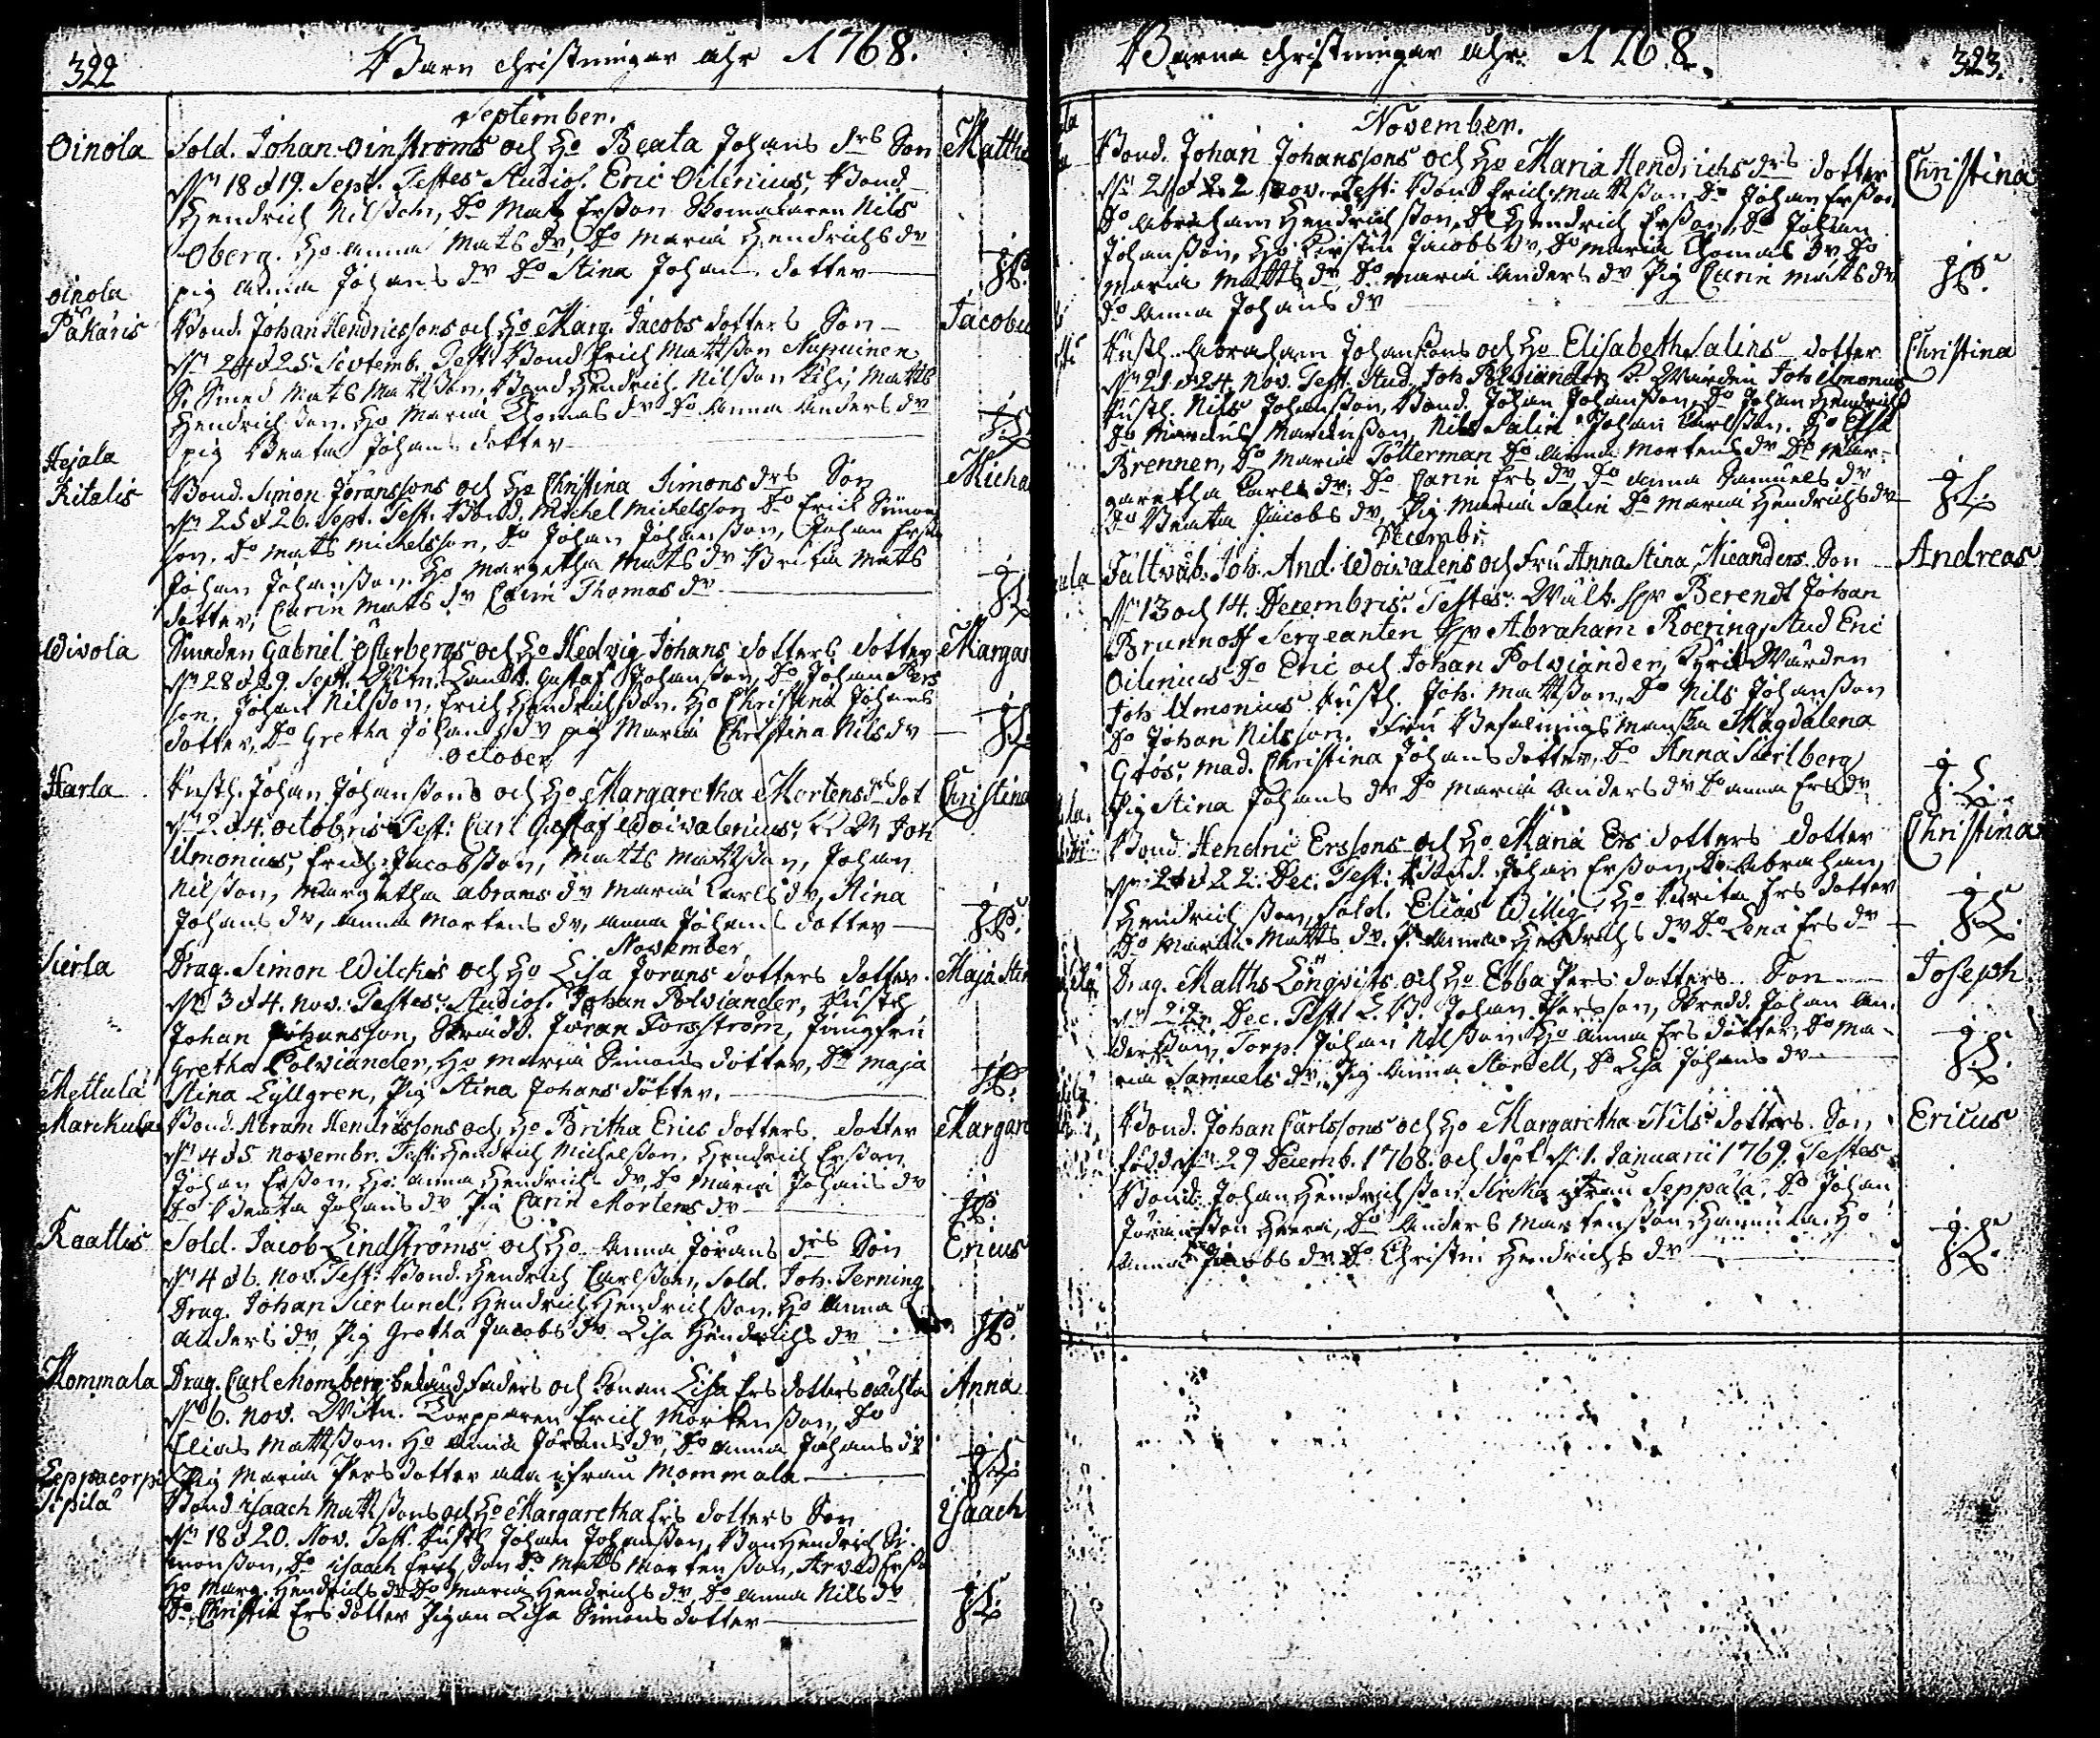 322
Barn Christningar Ahr 1768.
September.
Oinola Sold. Johan Oinströms och Ho Beata Johans drs Son Matth
Nr 18 d 19. Sept. Testes Studios. Eric Oilenius, Bond
Hendrich Nilsson, Do Mats Ersson Skomakaren Nils
Oberg. Ho Anna Mats dr, Do Maria Hendrichs dr
pig Anna Johans dr Do Stina Johans dotter
Oinola
Päkäris Bond. Johan Hendricssons och Ho Marg. Jacobs dotters Son Jacobu
24 d 25. Septemb. Test: Bond Erich Mattsson Nupuinen
S. Smed Mats Mattsson, Bond Hendrich Nilsson Matts
Hendrichson. Ho Maria Thomas dr Do Anna Anders dr
pig Beata Johans dotter
Hejala
Ritalis Bond. Simon Joranssons och Ho Christina Simons drs Son Micha
25 d 26. Sept. Test. Bond. Michel Michelsson Do Erich Simon
son. Do Mats Michelsson, Do Johan Johansson, Johan Ersson
Johan Johansson. Ho Margetha Mats dr Brita Mats
dotter, Carin Mats dr Carin Thomas dr
Wivola Smeden Gabriel Österbergs och Ho Hedvig Johans dotters dotter Margar
28 d 29. Sept. Witn. Landb. Gustaf Johansson, Do Johan Pers
son, Johan Nilsson, Erich Hendrichsson. Ho Christina Johans
dotter, Do Gretha Johans dr pig Maria Christina Nils dr
October
Harla Rusth. Johan Johanssons och Ho Margaretha Mortens drs dot Christina
2. d 4. Octobris Test: Carl Gustaf Woivalenius, Joh
Ilmonius, Erich Jacobsson, Matts Mattsson, Johan
Nilsson, Margetha Abrams dr Maria Carls dr, Stina
Johans dr, Anna Mortens dr, Anna Johans dotter
November
Sierla Drag. Simon Wilckes och Ho Lisa Jorans dotters dotter. Maja Stin
3 d 4. Nov. Testes. Studios. Johan Polviander, Rusth
Johan Johansson, Skrädd. Joran Forsström, Jungfru
Gretha Polviander, Ho Maria Simons dotter, Do Maja
Mettula Stina Lyllgren, Pig Stina Johans dotter.
Marckula Bond. Abram Hendricssons och Ho Britha Erics dotters dotter Margare
4 d 5 Novembr. Test: Hendrich Michelsson, Hendrich Ersson
Johan Ersson, Ho: Anna Hendrichs dr, Do Maria Johans dr
Do Beata Johans dr Pig Carin Mortens dr
Kaattis Sold. Jacob Lindströms och Ho Anna Jorans drs Son Ericus
4 d 6. Nov. Test: Bond. Hendrich Carlsson, Sold. Joh. Terning
Drag. Johan Sierlund, Hendrich Hendrichsson. Ho Anna
Anders dr, Pig Gretha Jacobs dr Lisa Hendrichs dr
Mommala Drag. Carl Momberg belände faders och Konan Lisa Ers dotters oächta Anna
6. Nov. Witn. Torpparen Erich Mortensson, Do
Elias Mattsson. Ho Anna Jorans dr, Do Anna Johans dr
Leppäcorpi Pig Maria Pers dotter alla ifrån Mommala
Sipilä Bond. Isaach Mattssons och Ho Margaretha Ers dotters Son Isaach
18 d 20. Nov. Test. Rusth Johan Johansson, Bon Hendrich Si
monsson, Do Isaach Erichson Do Matts Mortensson, Arved Ersso
Ho Marg. Hendrichs dr Do Maria Hendrichs dr, Do Anna Nils dr
Do Christin Ers dotter Pigan Lisa Simons dotter
Barna Christningar Ahr 1768.
323.
November.
Bond. Johan Johanssons och Ho Maria Hendrichs drs dotter Christina
21 d 22 Nov. Test: Bond Erich Mattsson Do Johan Ersson
Do Abraham Hendrichsson, Do Hendrich Ersson, Do Johan
Johansson, Ho: Kirstin Jacobs dr, Do Maria Thomas dr, Do
Maria Matts dr, Do Maria Anders dr Pig Carin Mats dr
Do Anna Johans dr
Rusth. Abraham Johanssons och Ho Elisabeth Salins dotter Christina
21 d 24. Nov. Test. Stud. Joh Polviander K. Wärden Joh Ilmonius
Rusth. Nils Johansson, Bond. Johan Johansson, Do Johan Hendrichs
Do Marcus Marcusson, Nils Salin Johan Carlsson. Ho Elsa
Brenner, Do Maria Tolterman Do Anna Mortens dr Do Mar-
garetha Carls dr: Do Carin Ers dr, Do Anna Samuels dr
Do Beata Jacobs dr, Pig Maria Salin Do Maria Hendrichs dr
Decembr:
Fältväb. Joh. And. Woivalens och Fru Anna Stina Nicanders Son Andreas
13 och 14. Decembris. Testes: Wälb. Hr Berendt Johan
Brunnoff Sergeanten Hr Abraham Roering, Stud Eric
Oilenius Do Eric och Johan Polviander, Kyrk Wärden
Joh Ilmonius Rusth. Joh. Mattsson, Do Nils Johansson
Do Johan Nilsson. Fru Befalningsmanska Magdalena
Grös, Mad. Christina Johans dotter, Do Anna Sierlberg
Pig Stina Johans dr Do Maria Anders dr Do Anna Ers dr
Bond Hendric Erssons och Ho Maria Ers dotters dotter Christina
21 d 22. Dec. Test: Bond. Johan Ersson, Do Abraham
Hendrichsson, Sold. Elias Willig. Ho Brita Ers dotter
Do Maria Matts dr. P. Anna Hendrichs dr Do Lena Ers dr
Drag. Matths Lönqvists och Ho Ebba Pers dotters Son Joseph
Dec. Test: L. B. Johan Persson, Skredd. Johan An-
dersson, Torp. Johan Nilsson Ho Anna Ers dotter, Do Ma-
ria Samuels dr, Pig Anna Stordell, Do Lisa Johans dr
Bond. Johan Carlssons och Ho Margaretha Nils dotters Son Ericus
född 29 Decemb. 1768. och döpt 1. Januarii 1769. Testes
Bond. Johan Hendrichsson Sirka ifrån Seppälä, Do Johan
Joransson Heera, Do Anders Martensson Hannula. Ho
Anna Jacobs dr Do Christin Hendrichs dr